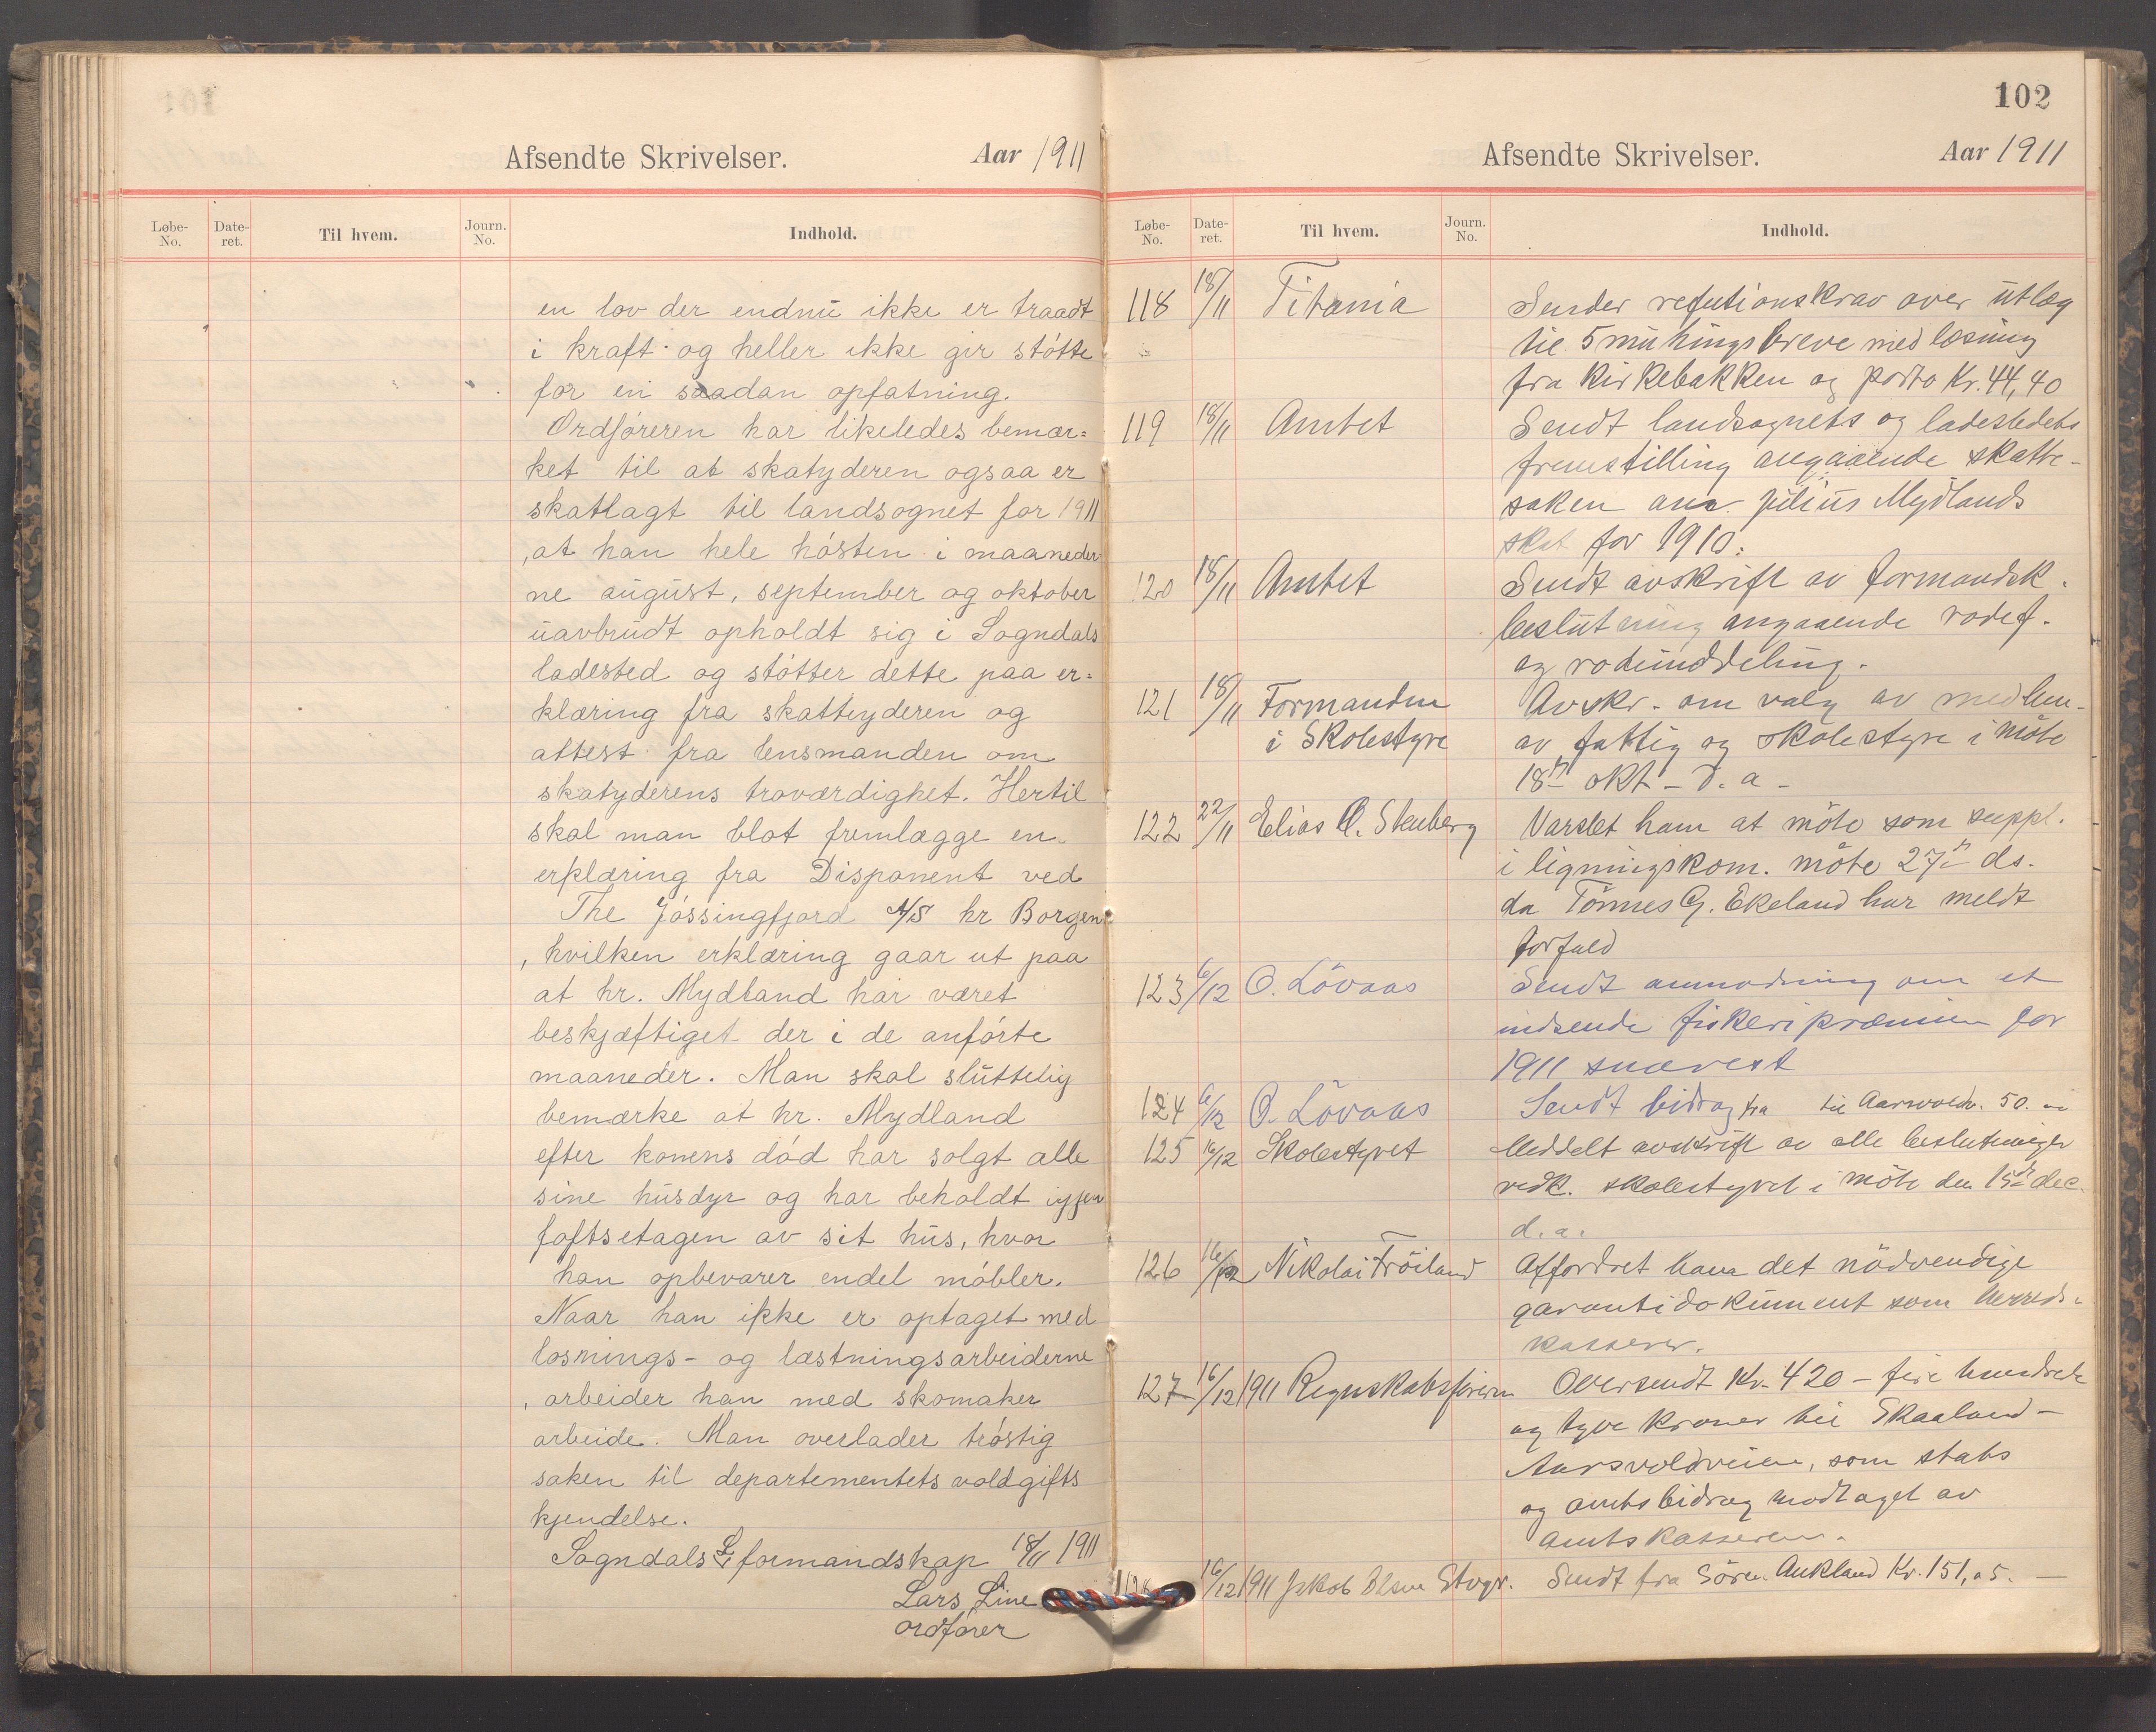 Afsendte Skrivelser. Aar 1911
Løbe-No. Date-ret. Til hvem. Journ. No. Indhold.
en lov der endnu ikke er traadt
i kraft og heller ikke gir støtte
for en saadan opfatning.
Ordføreren har likeledes bemær=
ket til at skatyderen ogsaa er
skatlagt til landsognet for 1911
, at han hele høsten i maaneder
ne august, september og oktober
uavbrudt opholdt sig i Sogndals
ladested og støtter dette paa er=
klæring fra skatteyderen og
attest fra lensmanden om
skatyderens troværdighet. Hertil
skal man blot fremlægge en
erklæring fra Disponent ved
The Jøssingfjord A/S hr Borgen
, hvilken erklæring gaar ut paa
at hr. Mydland har været
beskjæftiget der i de anførte
maaneder. Man skal sluttelig
bemærke at hr. Mydland
efter konens død har solgt alle
sine husdyr og har beholdt igjen
loftsetagen av sit hus, hvor
han opbevarer endel møbler.
Naar han ikke er optaget med
losnings- og læstningsarbeiderne
, arbeider han med skomaker
arbeide. Man overlader trøstig
saken til departementets voldgifts
kjendelse.
Sogndals L. formandskap 18/11 1911
Lars Line
ordfører
102
Afsendte Skrivelser. Aar 1911
Løbe-No. Date-ret. Til hvem. Journ. No. Indhold.
118 18/11 Titania Sender refutionskrav over utlæg
til 5 mutingsbreve med løsning
fra Kirkebakken og porto Kr. 44,40
119 18/11 Amtet Sendt landsognets og ladestedets
fremstilling angaaende skatte-
saken ang. Julius Mydlands
skat for 1910.
120 18/11 Amtet Sendt avskrift av formandsk.
beslutning angaaende rodef.
og rodeinddeling.
121 18/11 Formanden Avskr. om valg av medlem.
i Skolestyre av fattig og skolestyre i møte
18de okt - d. a -
122 22/11 Elias O. Stenberg Varslet ham at møte som suppl.
i ligningskom. møte 27de ds.
da Tønnes G. Ekeland har meldt
forfald
123 6/12 O. Løvaas Sendt anmodning om at
indsende fiskeripræmien for
1911 snarest
124 6/12 O. Løvaas Sendt bidrag fra til Aarsvoldv. 50.
125 16/12 Skolestyret Meddelt avskrift av alle beslutninger
vedk. skolestyret i møte den 15de dec.
d. a.
126 16/12 Nikolai Frøiland Affordret ham det nødvendige
garantidokument som herreds-
kasserer.
127 16/12 1911 Regnskabsføreren Oversendt Kr. 420 - fire hundrede
og tyve kroner til Skaaland-
Aarsvoldveien, som stats
og amtsbidrag modtaget av
amtskassereren.
128 16/12 1911 Jakob Olsen Stogr. Sendt fra Søren Aukland Kr. 151,05. -